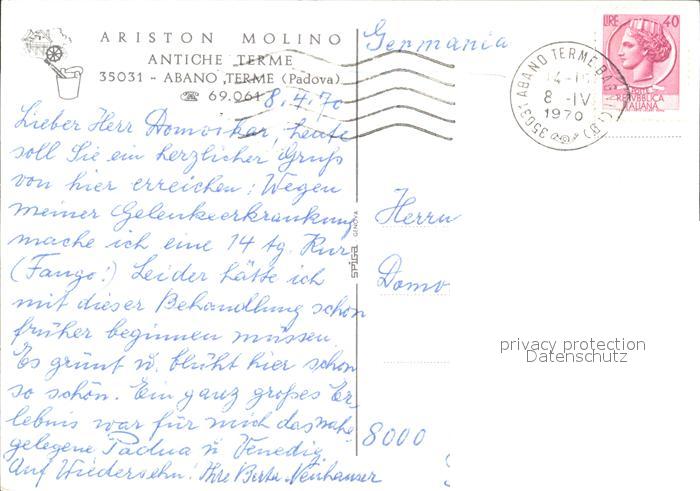 ARISTON MOLINO
ANTICHE TERME
35031 - ABANO TERME (Padova)
☎ 69.061
8.4.70
Lieber Herr Domoskar, heute
soll Sie ein herzlicher Gruß
von hier erreichen: Wegen
meiner Gelenkserkrankung
mache ich eine 14 tg. Kur
(Fango!) Leider hätte ich
mit dieser Behandlung schon
früher beginnen müssen.
Es grünt u. blüht hier schon
so schön. Ein ganz großes Er-
lebnis war für mich das nahe
gelegene Padua u Venedig
Auf Wiedersehn! Ihre Berta Neuhauser
SPIGA GENOVA
Germania
LIRE 40
REPUBBLICA
ITALIANA
35031 ABANO TERME BAGNI (PD)
8 -IV
1970
Herrn
Domo
privacy protection
Datenschutz
8000